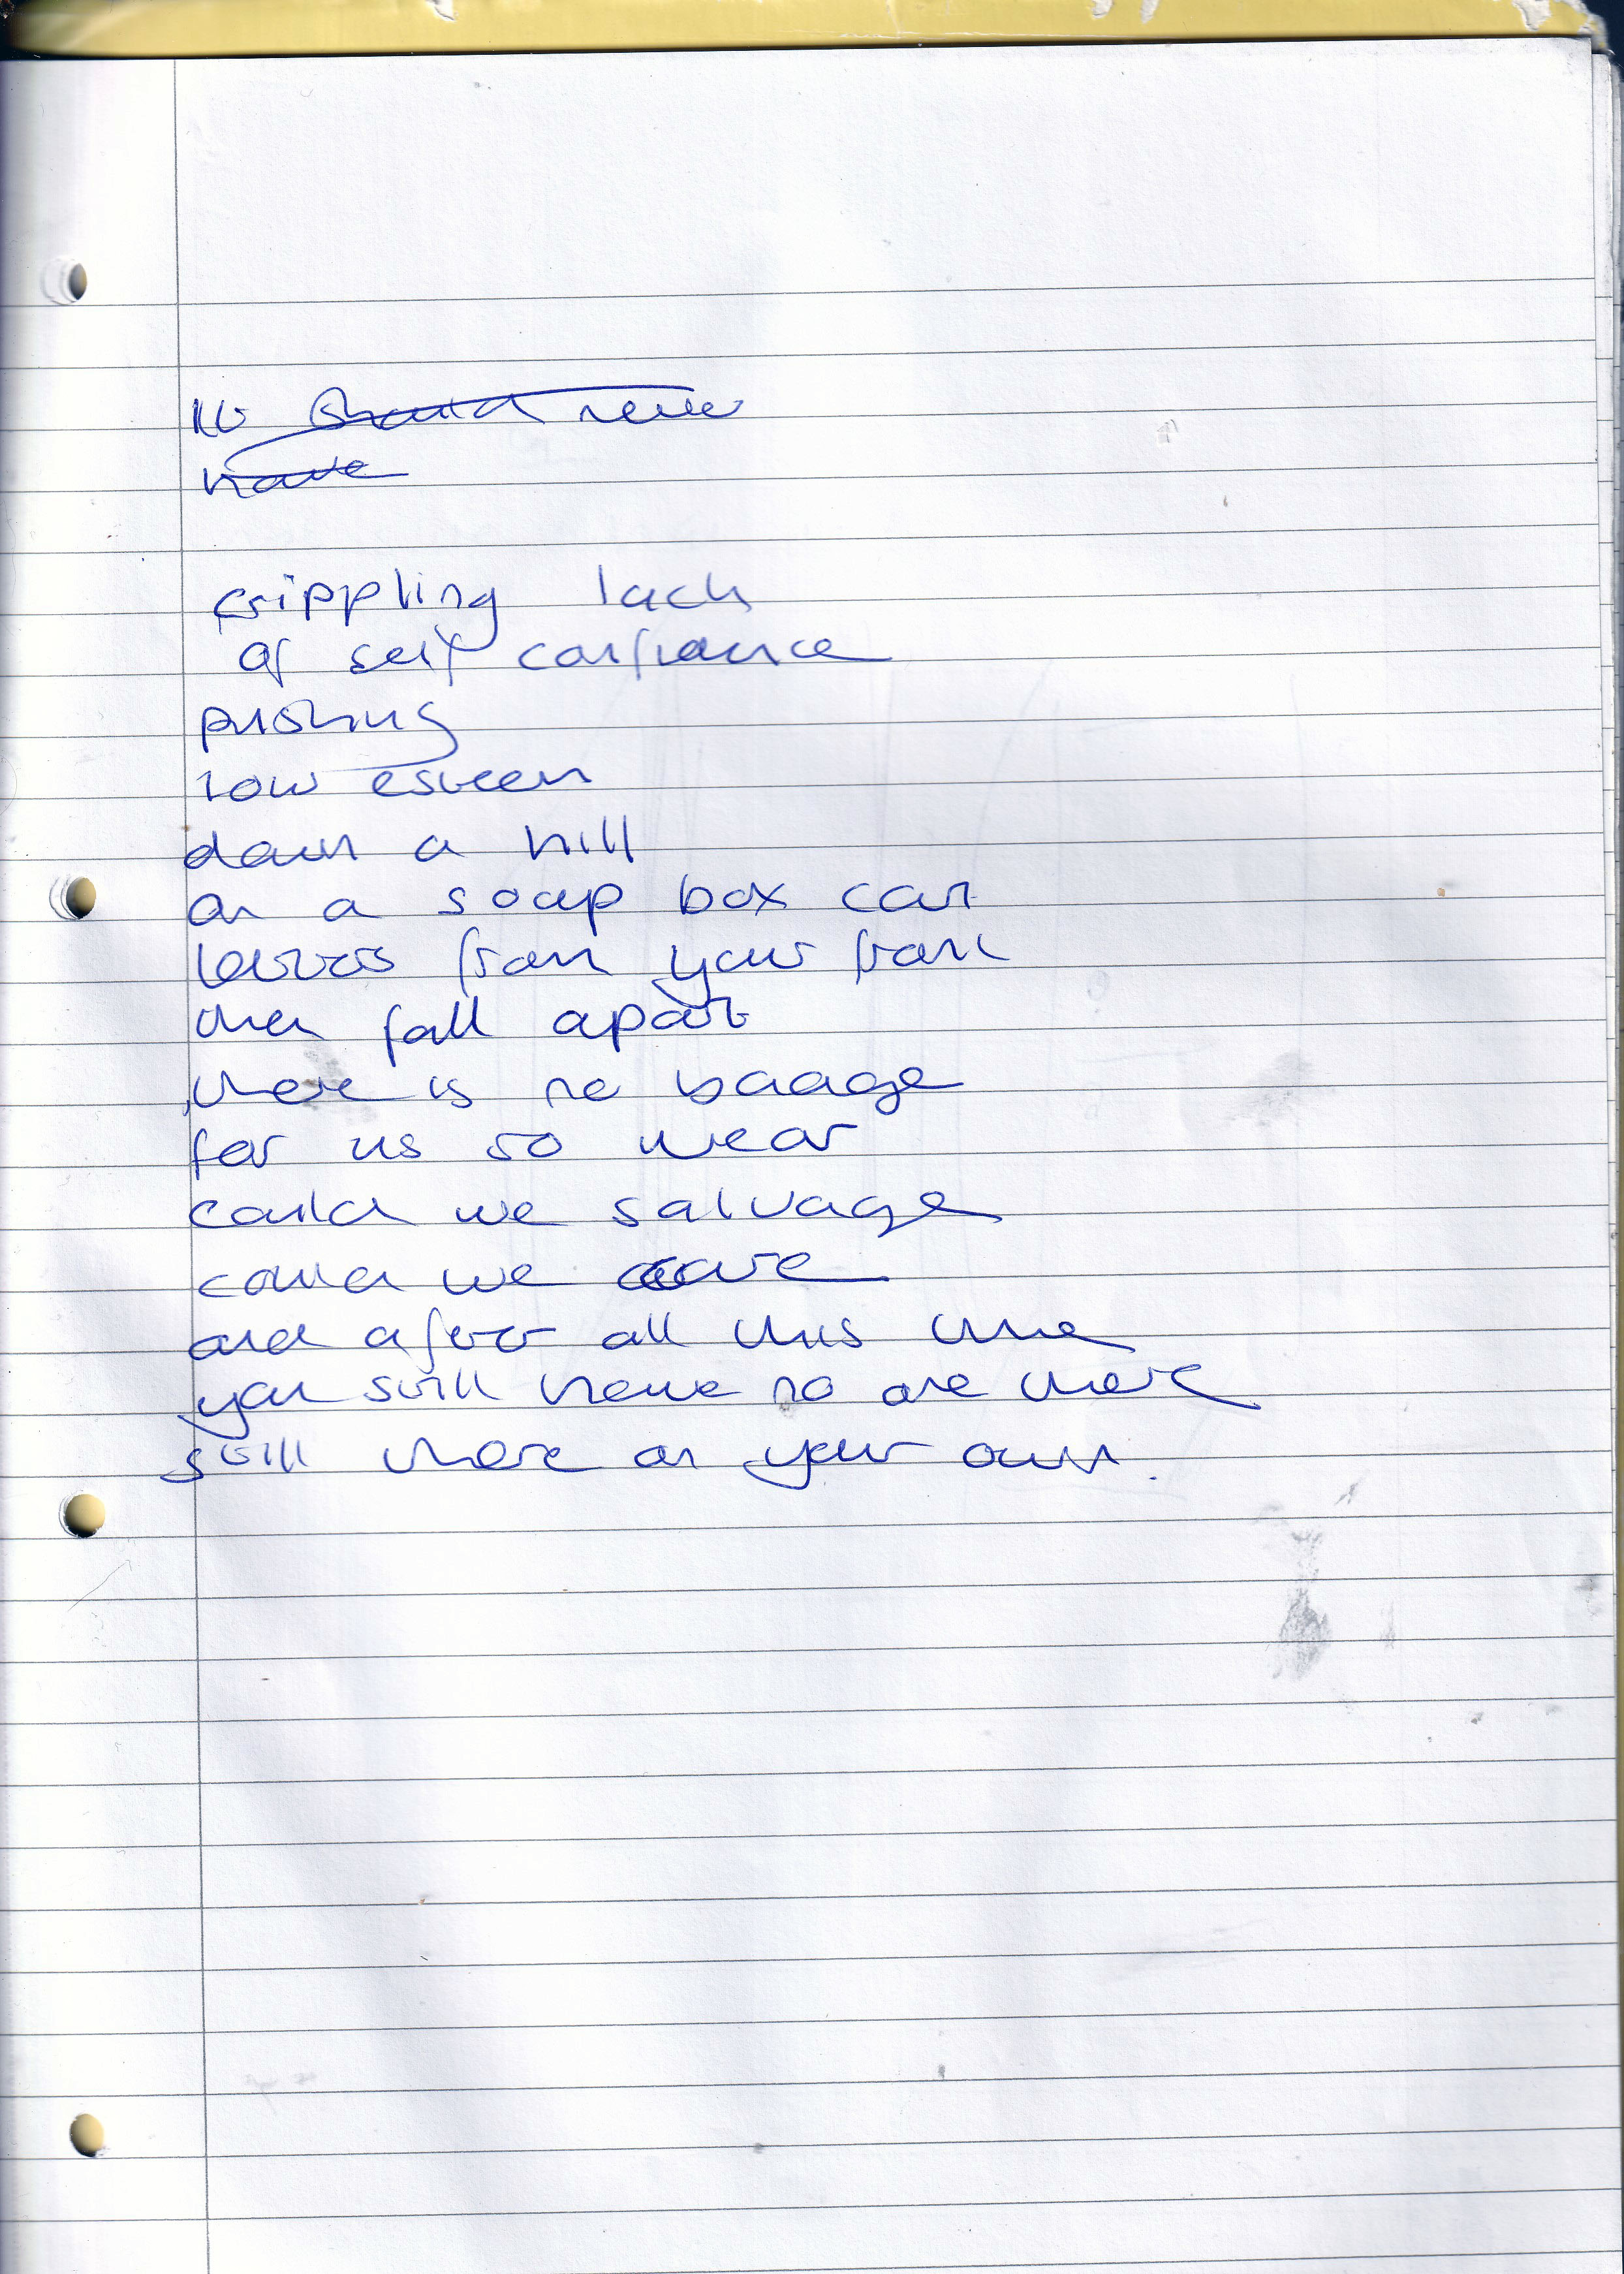 It should never
have
crippling lack
of self confidence
pushing
low esteem
down a hill
on a soap box car
letters from your
then fall apart
there is no badge
for us to wear
could we salvage
could we care
and after all this time
you still have no one there
still there on your own.